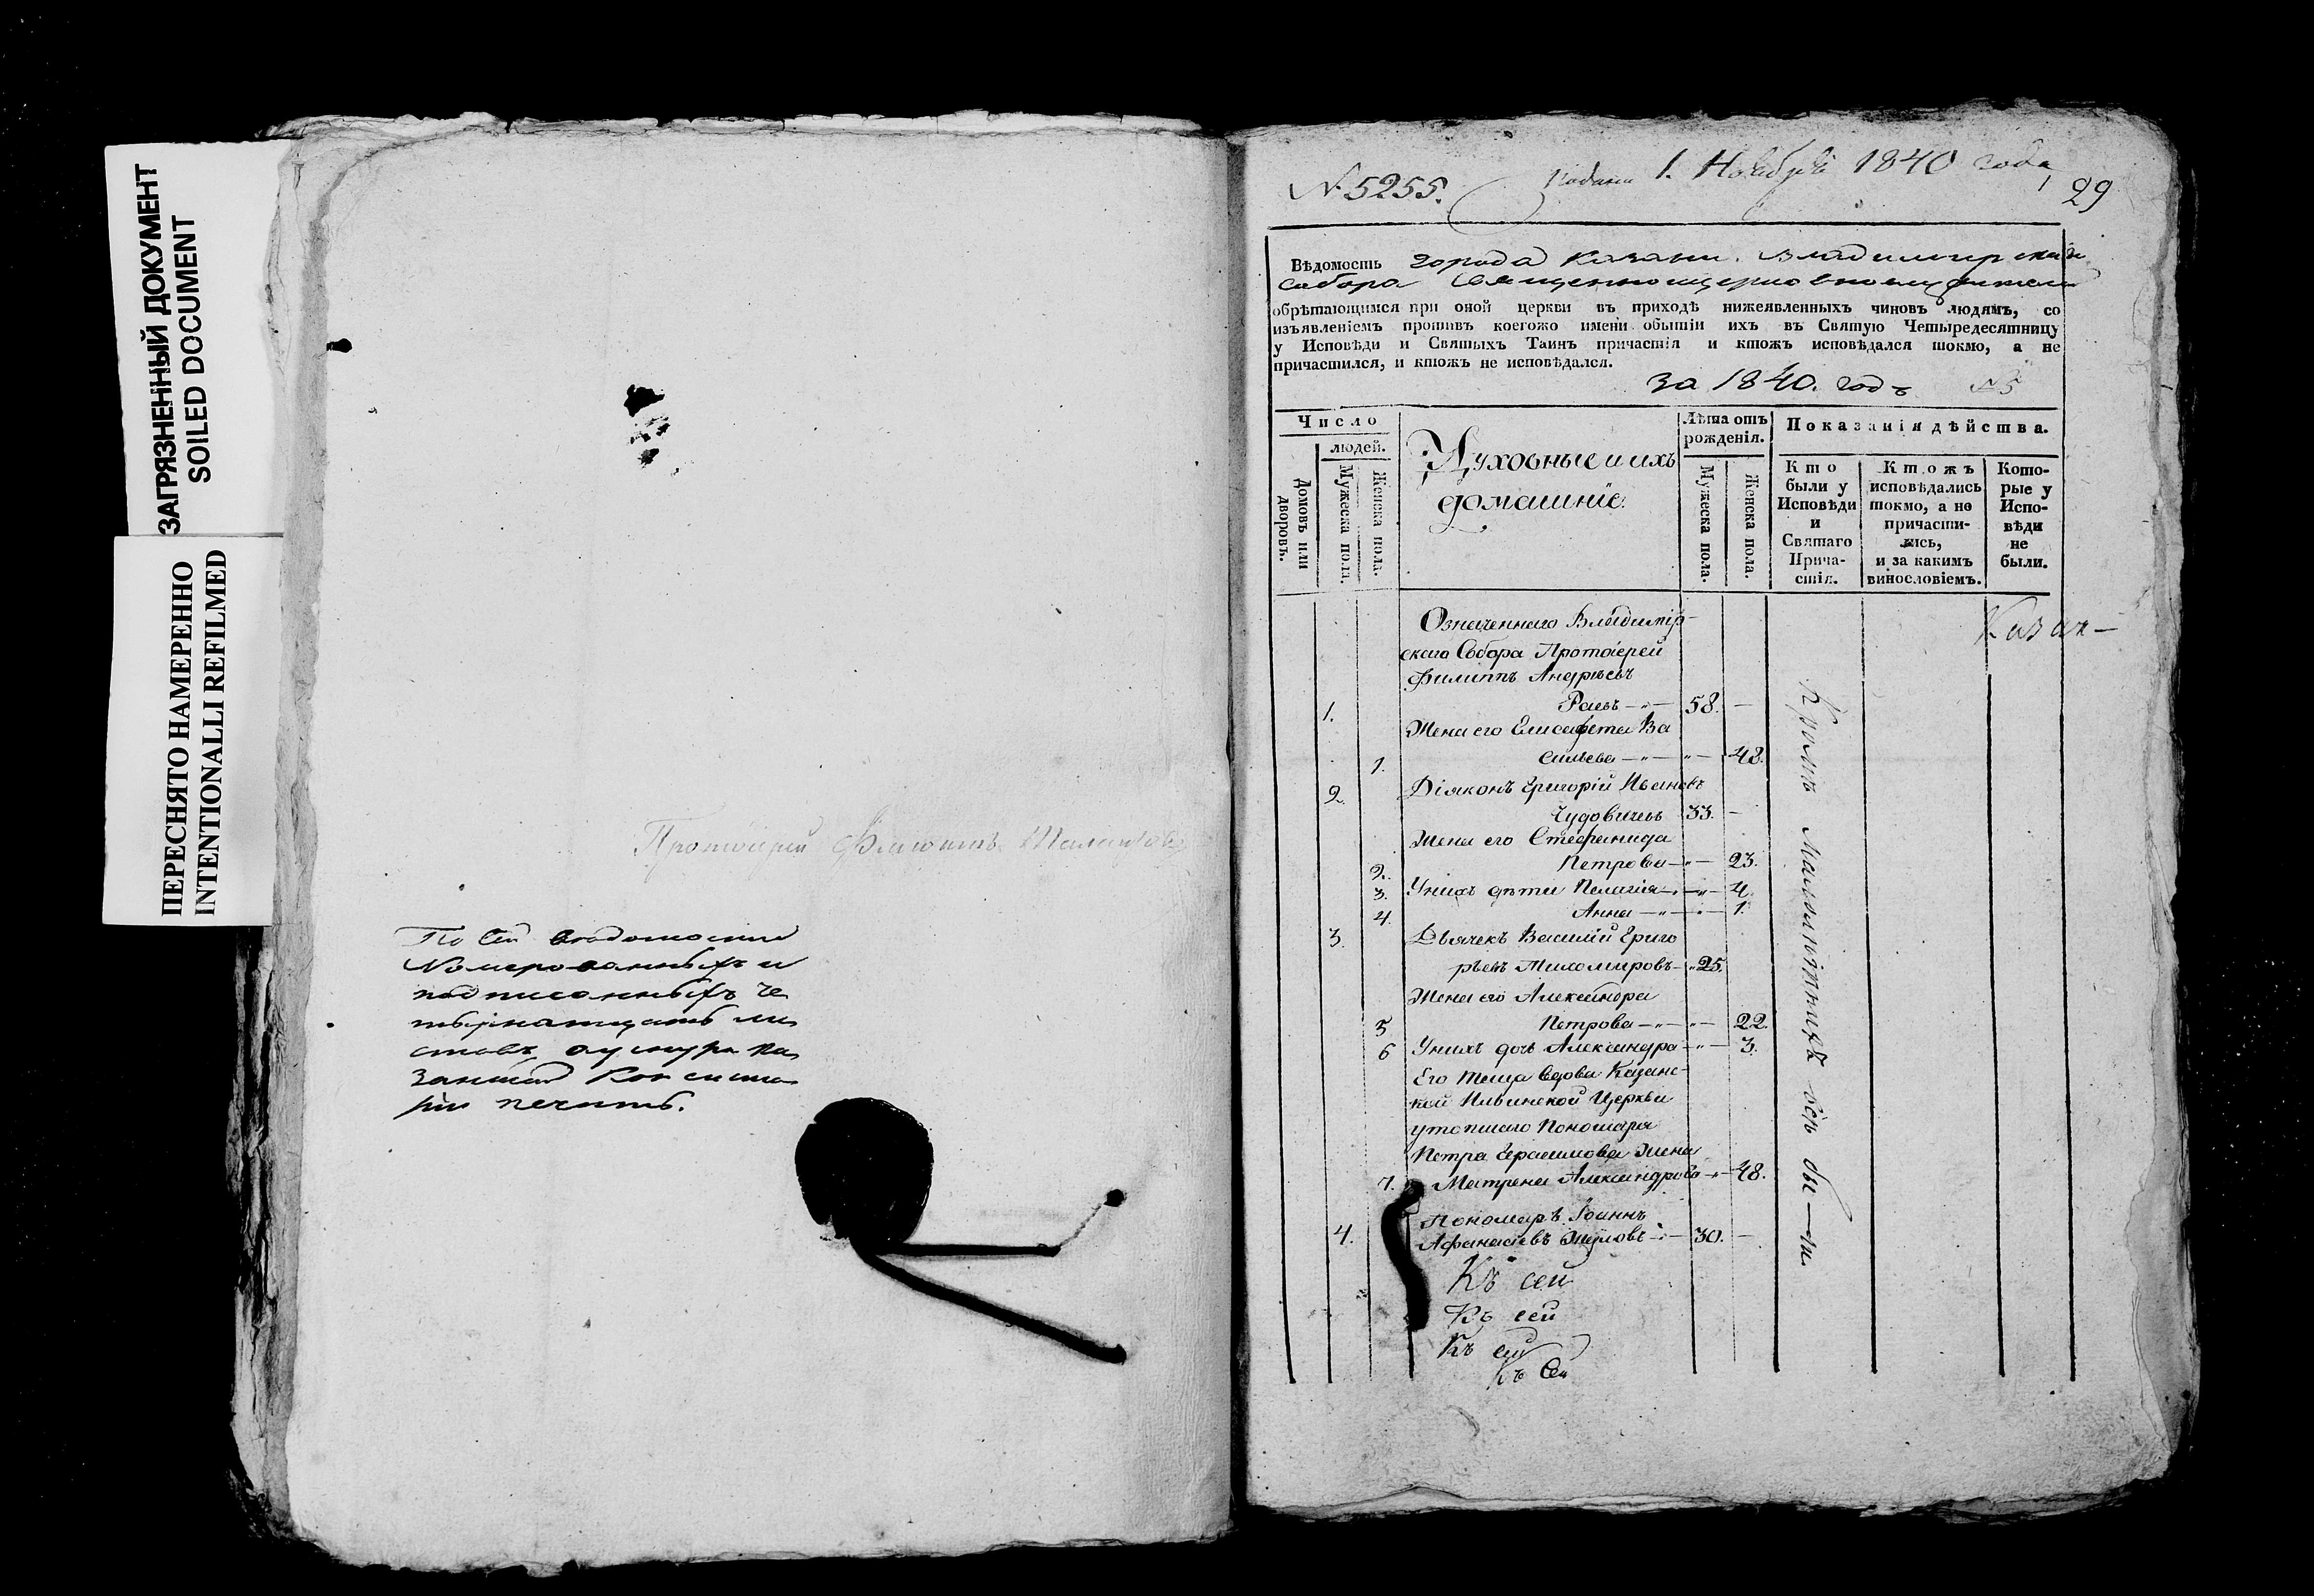 ЗАГРЯЗНЕННЫЙ ДОКУМЕНТ
SOILED DOCUMENT
ПЕРЕСНЯТО НАМЕРЕННО
INTENTIONALLI REFILMED
Протоіерей
По сей ведомости
Номерованныхъ и
подписанныхъ че
тырнатцать ли
стовъ, а у снура ка
занской Консисто
ріи печать.
N. 5255.
Подана 1. Ноября 1840 года
29
Вѣдомость города Казани. Владимирскаго
собора Священноцерковнослужителей
обрѣтающимся при оной церкви въ приходѣ нижеявленныхъ чиновъ людямъ, со
изъявленіемъ противъ коегожо имени обытіи ихъ въ Святую Четыредесятницу
у Исповѣди и Святыхъ Таинъ причастія и ктожъ исповѣдался токмо, а не
причастился, и ктожъ не исповѣдался.
За 1840. годъ
Число
людей.
Домовъ или дворовъ.
Мужеска пола.
Женска пола.
Духовные и ихъ
домашніе.
Лѣта отъ
рожденія.
Мужеска пола.
Женска пола.
Показанія дѣйства.
Кто
были у
Исповѣди
и
Святаго
Прича-
стія.
Ктожъ
исповѣдались
токмо, а не
причасти-
лись,
и за какимъ
винословіемъ.
Кото-
рые у
Испо-
вѣди
не
были.
Означеннаго Владимір-
скаго Собора Протоіерей
Филиппъ Андрѣевъ
1. Раевъ — 58. —
Жена его Елисавета Ва
1. сильева — 48.
2. Діяконъ Григорій Ивановъ
Чудовичевъ 33. —
Жена его Стефанида
2. Петрова — 23.
3. У нихъ дѣти Пелагія — 4.
4. Анна — 1.
3. Дьячекъ Василій Григо
рьевъ Тихомировъ — 25.
Жена его Александра
5 Петрова — 22.
6 У нихъ дочь Александра — 3.
Его теща вдова Казанс-
кой Ильинской Церкви
умершаго Пономаря
Петра Герасимова жена
7. Матрена Александрова — 48.
4. Пономарь Іоаннъ
Афанасіевъ — 30. —
Къ сей
Къ сей
Къ сей
Къ сей
Кромѣ малолѣтнихъ всѣ бы — ли
Казан —